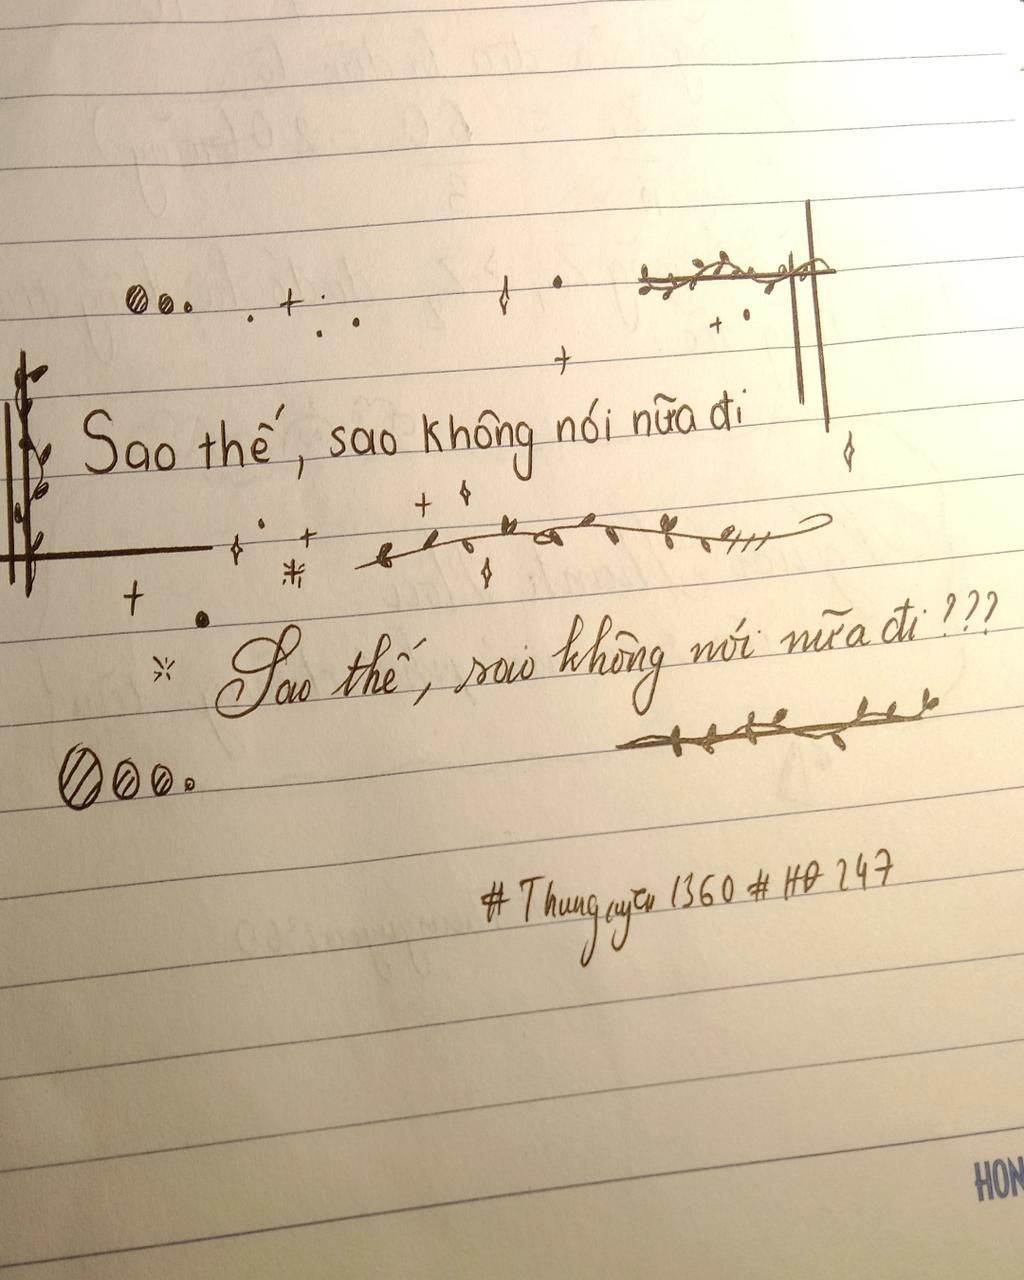 Sao thế, sao không nói nữa đi
Sao thế, sao không nói nữa đi???
# Thunguyen 1360 # HĐ 247
HON